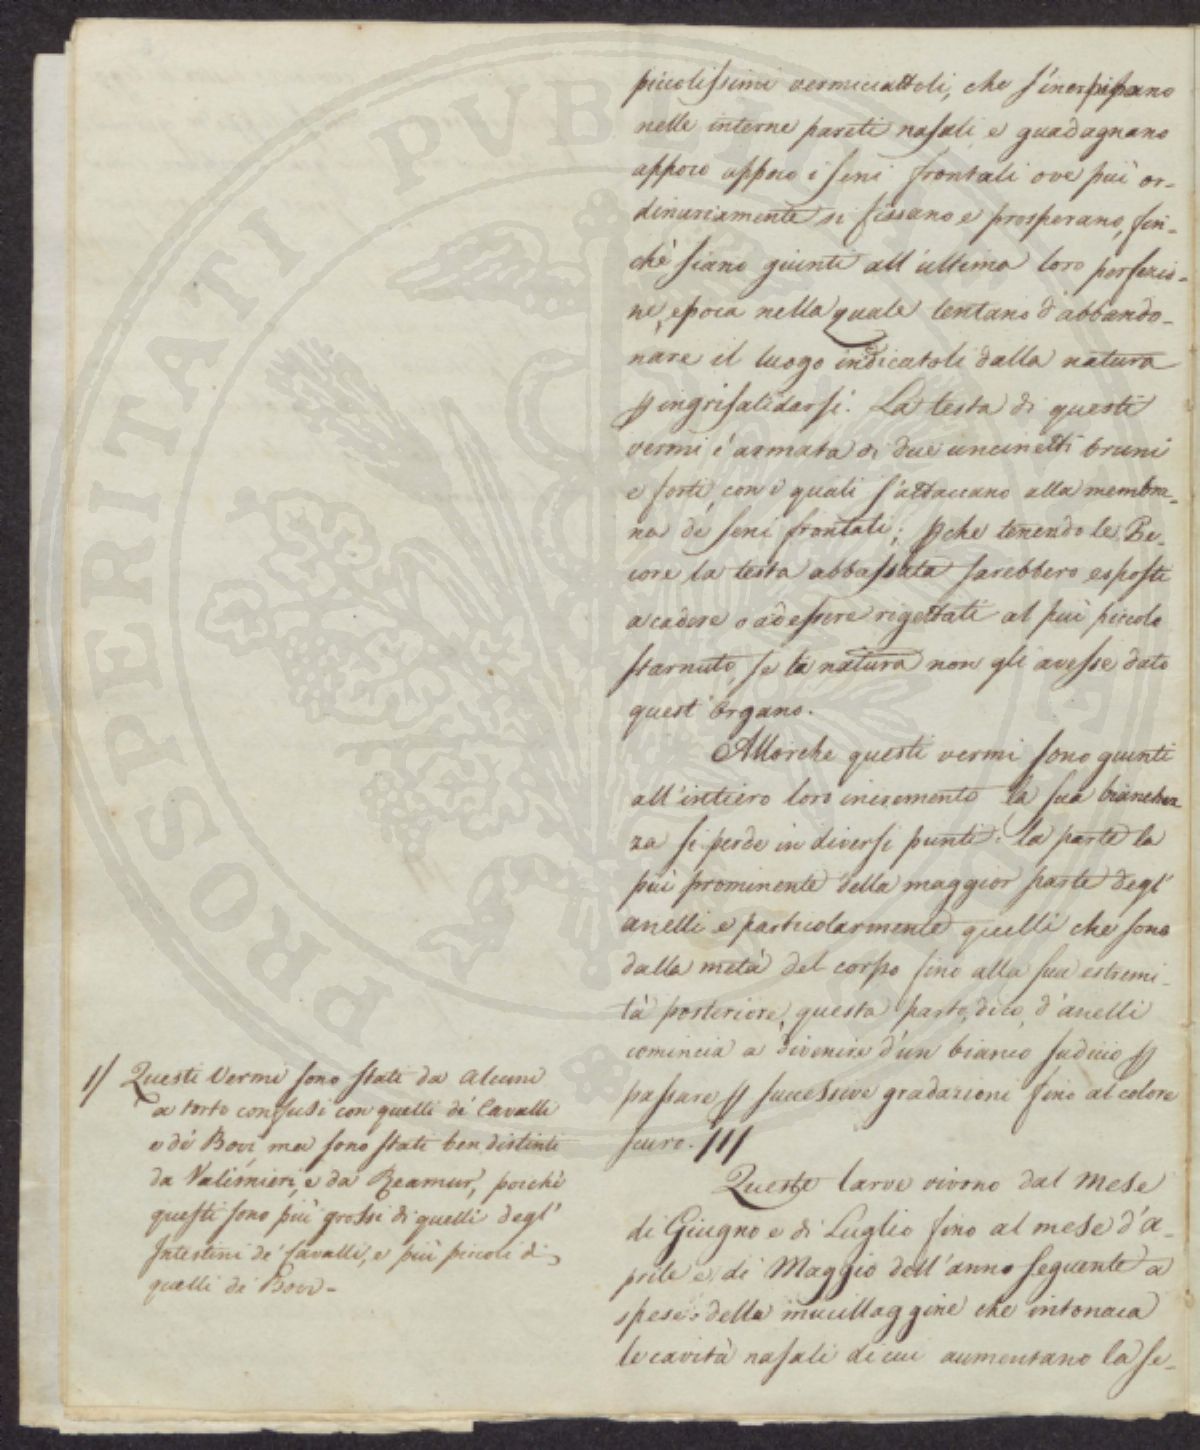 piccolissimi vermiciattoli, che s'inerpipano
nelle interne pareti nasali, e guadagnano
appoco appoco i seni frontali ove più or-
dinariamente si fissano e prosperano, fin-
chè siano giunti all'ultima loro perfezio-
ne, epoca nella quale tentano d'abbando-
nare il luogo indicatoli dalla natura
p ingrisalidarsi. La testa di questi
vermi è armata di due uncinetti bruni
e forti, con i quali s'attaccano alla membra-
na de seni frontali; pche tenendo le Pe-
core la testa abbassata sarebbero esposti
a cadere o ad essere rigettati al più piccolo
starnuto, se la natura non gli avesse dato
quest'organo.
Allorche questi vermi sono giunti
all'intiero loro incremento la sua bianchez
za si perde in diversi punti: la parte la
più prominente della maggior parte degl'
anelli e particolarmente quelli che sono
dalla metà del corpo fino alla sua estremi-
tà posteriore, questa parte, dico, d'anelli
comincia a divenire d'un bianco sudicio p
passare p successive gradazioni fino al colore
scuro. /1/
Queste larve vivono dal mese
di Giugno e di Luglio fino al mese d'A-
prile e di Maggio dell'anno seguente a
spese della mucillaggine che intonaca
le cavità nasali di cui aumentano la se-
1/ Questi Vermi sono stati da alcuni
a torto confusi con quelli de' Cavalli
e de' Bovi, ma sono stati ben distinti
da Valisnieri, e da Reamur, poichè
questi sono più grossi di quelli degl'
Intestini de' Cavalli, e più piccoli di
quelli de' Bovi-
PROSPERITATI PVBLICAE